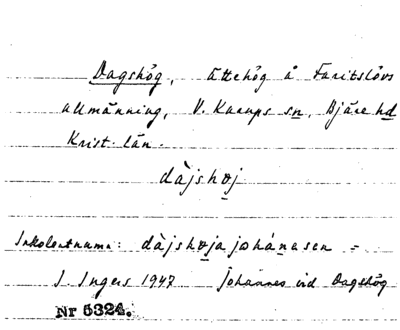 Dagshög, ättehög å Faritslövs
allmänning, V. Karups sn, Bjäre hd
Krist. län.
dàjshøj
Inkolentnamn: dàjshøja johánesen =
I. Ingers 1947 Johannes vid Dagshög
Nr 5324.